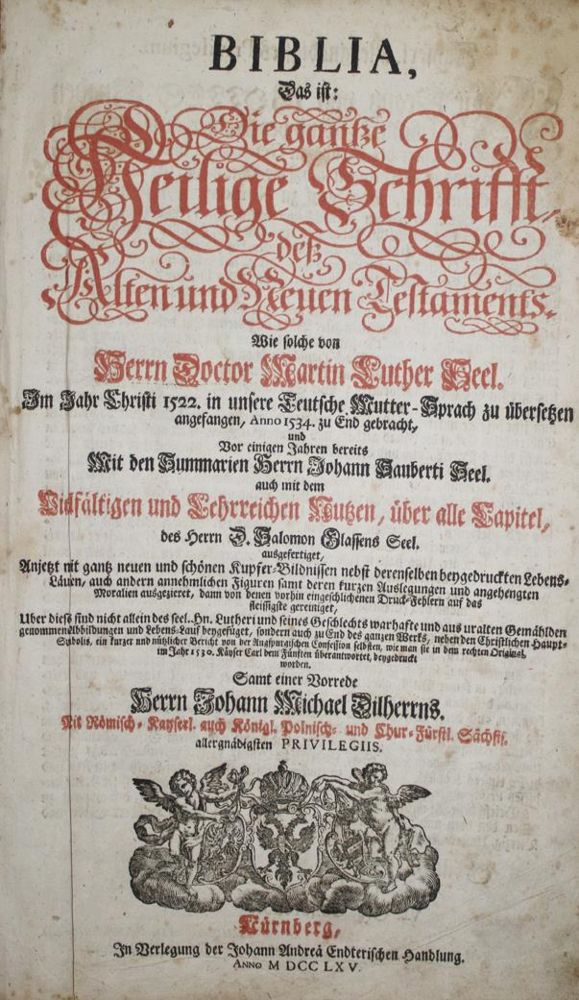 BIBLIA,
Das ist:
Die gantze
Heilige Schrifft,
deß
Alten und Neuen Testaments.
Wie solche von
Herrn Doctor Martin Luther Seel.
Im Jahr Christi 1522. in unsere Teutsche Mutter-Sprach zu übersetzen
angefangen, Anno 1534. zu End gebracht,
und
Vor einigen Jahren bereits
Mit den Summarien Herrn Johann Sauberti Seel.
auch mit dem
Vielfältigen und Lehrreichen Nutzen, über alle Capitel,
des Herrn D. Salomon Glassens Seel.
ausgefertiget,
Anjetzt mit gantz neuen und schönen Kupfer-Bildnissen nebst derenselben beygedruckten Lebens-
Läuen, auch andern annehmlichen Figuren samt deren kurzen Auslegungen und angehengten
Moralien ausgezieret, dann von denen vorhin eingeschlichenen Druck-Fehlern auf das
fleissigste gereiniget,
Uber diess sind nicht allein des seel. Hn. Lutheri und seines Geschlechts warhafte und aus uralten Gemählden
genommen Abbildungen und Lebens-Lauf beygefüget, sondern auch zu End des ganzen Werks, neben den Christlichen Haupt-
Symbolis, ein kurzer und nützlicher Bericht von der Augspurgischen Confession selbsten, wie man sie in dem rechten Original
im Jahr 1530. Käyser Carl dem Fünften überantwortet, beygedruckt
worden.
Samt einer Vorrede
Herrn Johann Michael Dilherrns.
Mit Römisch-Kayserl. auch Königl. Polnisch- und Chur-Fürstl. Sächsis.
allergnädigsten PRIVILEGIIS.
Nürnberg,
In Verlegung der Johann Andreä Endterischen Handlung.
ANNO M DCC LXV.